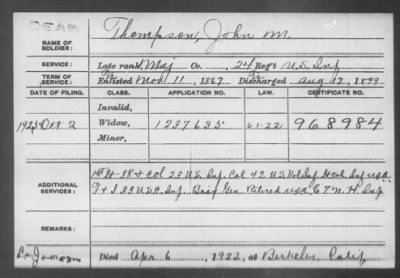 DEAD
NAME OF SOLDIER: Thompson, John M.
SERVICE: Late rank, Maj Co. 24 Reg't U.S. Inf
TERM OF SERVICE: Enlisted Nov. 11, 1867 Discharged Aug 17, 1899
DATE OF FILING. CLASS. APPLICATION NO. LAW. CERTIFICATE NO.
Invalid,
1922 Oct 2 Widow, 1237635 968984
Minor,
ADDITIONAL SERVICES: Col 23 U.S. Inf. Col 42 U.S. Vol Inf
Inf. Brig Gen. Retired U.S.A. E 7 N. H. Inf
REMARKS:
Died Apr. 6, 1922, at Berkeley, Calif